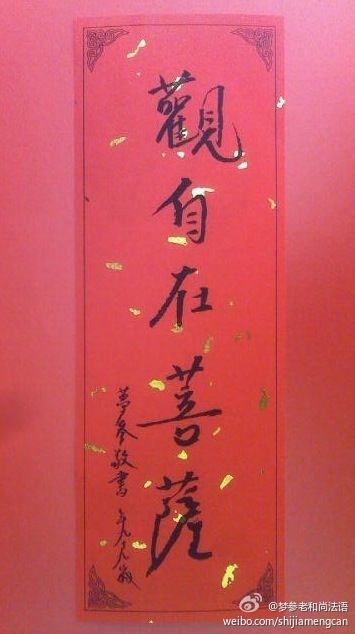 觀自在菩薩
夢參敬書
@梦参老和尚法语
weibo.com/shijiamengcan